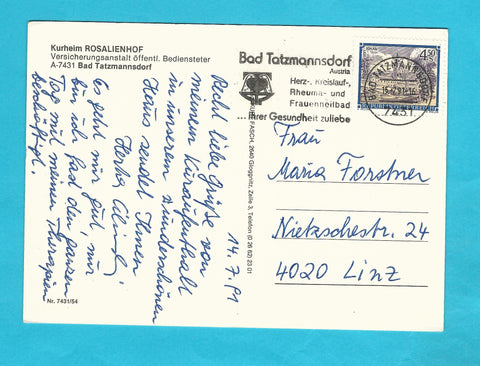 Kurheim ROSALIENHOF
Versicherungsanstalt öffentl. Bediensteter
A-7431 Bad Tatzmannsdorf
14.7.91
Recht liebe Grüße von
meinem Kuraufenthalt
in unserem wunderschönen
Haus sendet Ihnen
Herta
Es geht mir gut,
bin ich fast den ganzen
Tag mit meinen Therapien
beschäftigt.
Nr. 7431/54
FASCH, 2640 Gloggnitz, Zeile 3, Telefon (0 26 62) 23 01
Bad Tatzmannsdorf
Austria
Herz-, Kreislauf-,
Rheuma- und
Frauenheilbad
... Ihrer Gesundheit zuliebe
4.50
BAD TATZMANNSDORF
7431
Frau
Maria Forstner
Nietzschestr. 24
4020 Linz